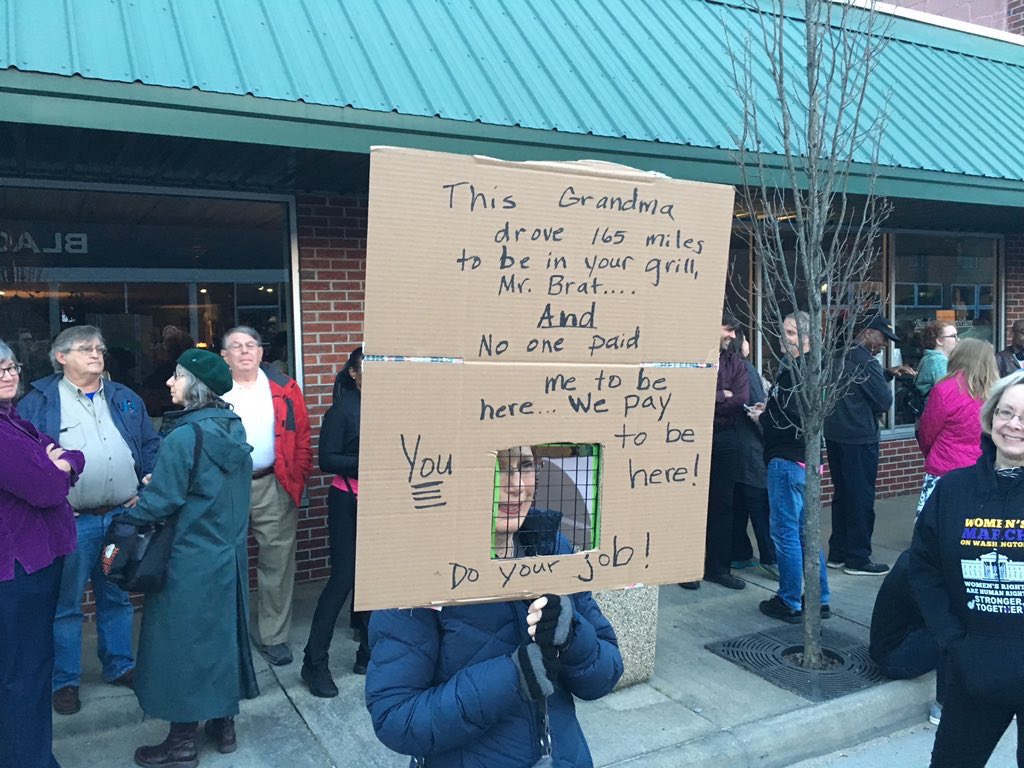 This Grandma
drove 165 miles
to be in your grill,
Mr. Brat....
And
No one paid
me to be
here... We pay
You
to be
here!
Do your job!
BLAC
WOMEN'S
MARCH
ON WASHINGTON
WOMEN'S RIGHTS
ARE HUMAN RIGHTS
STRONGER
TOGETHER